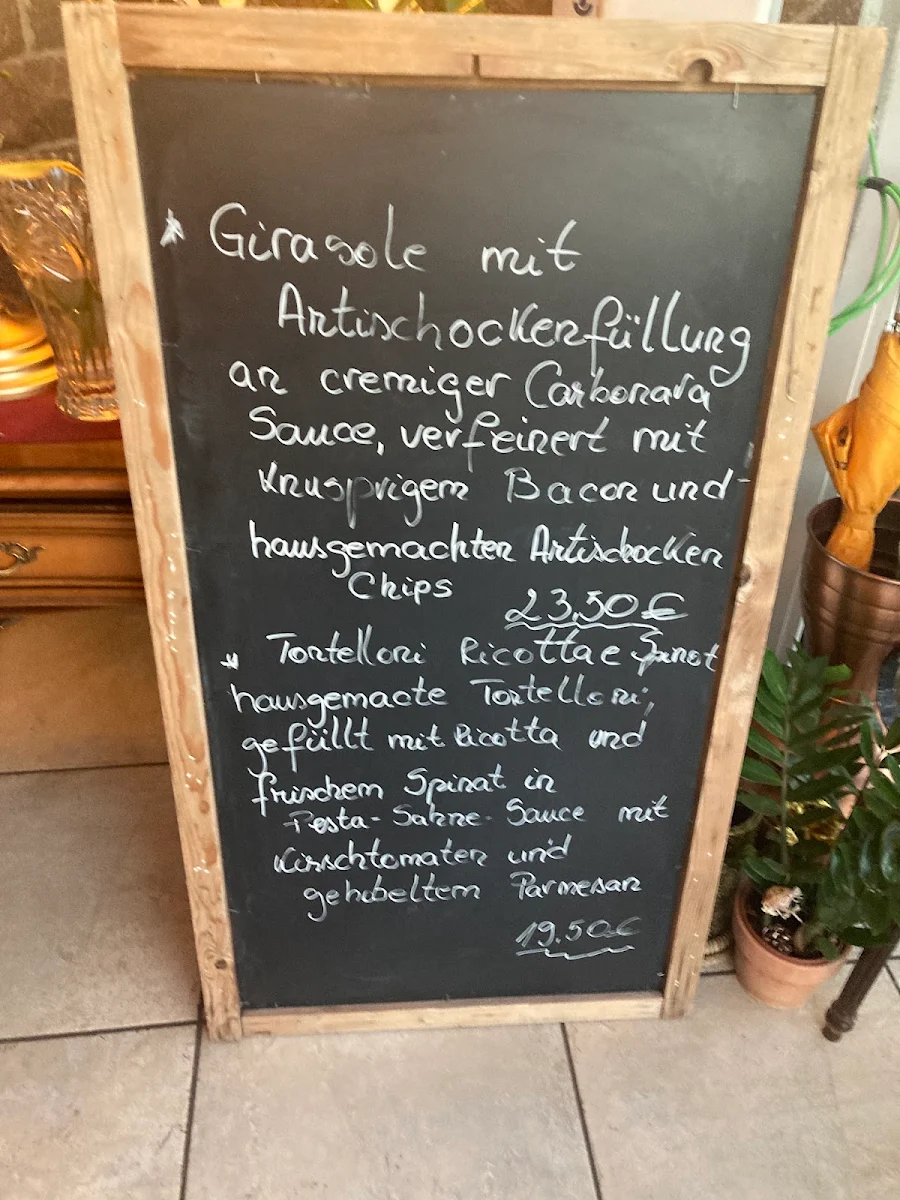 * Girasole mit
Artischockenfüllung
an cremiger Carbonara
Sauce, verfeinert mit
Knusprigem Bacon und
hausgemachten Artischocken
Chips
23,50 €
* Tortelloni Ricotta e Spinat
hausgemacte Tortelloni,
gefüllt mit Ricotta und
frischem Spinat in
Pesta-Sahne-Sauce mit
Kirschtomaten und
gehobeltem Parmesan
19.50€